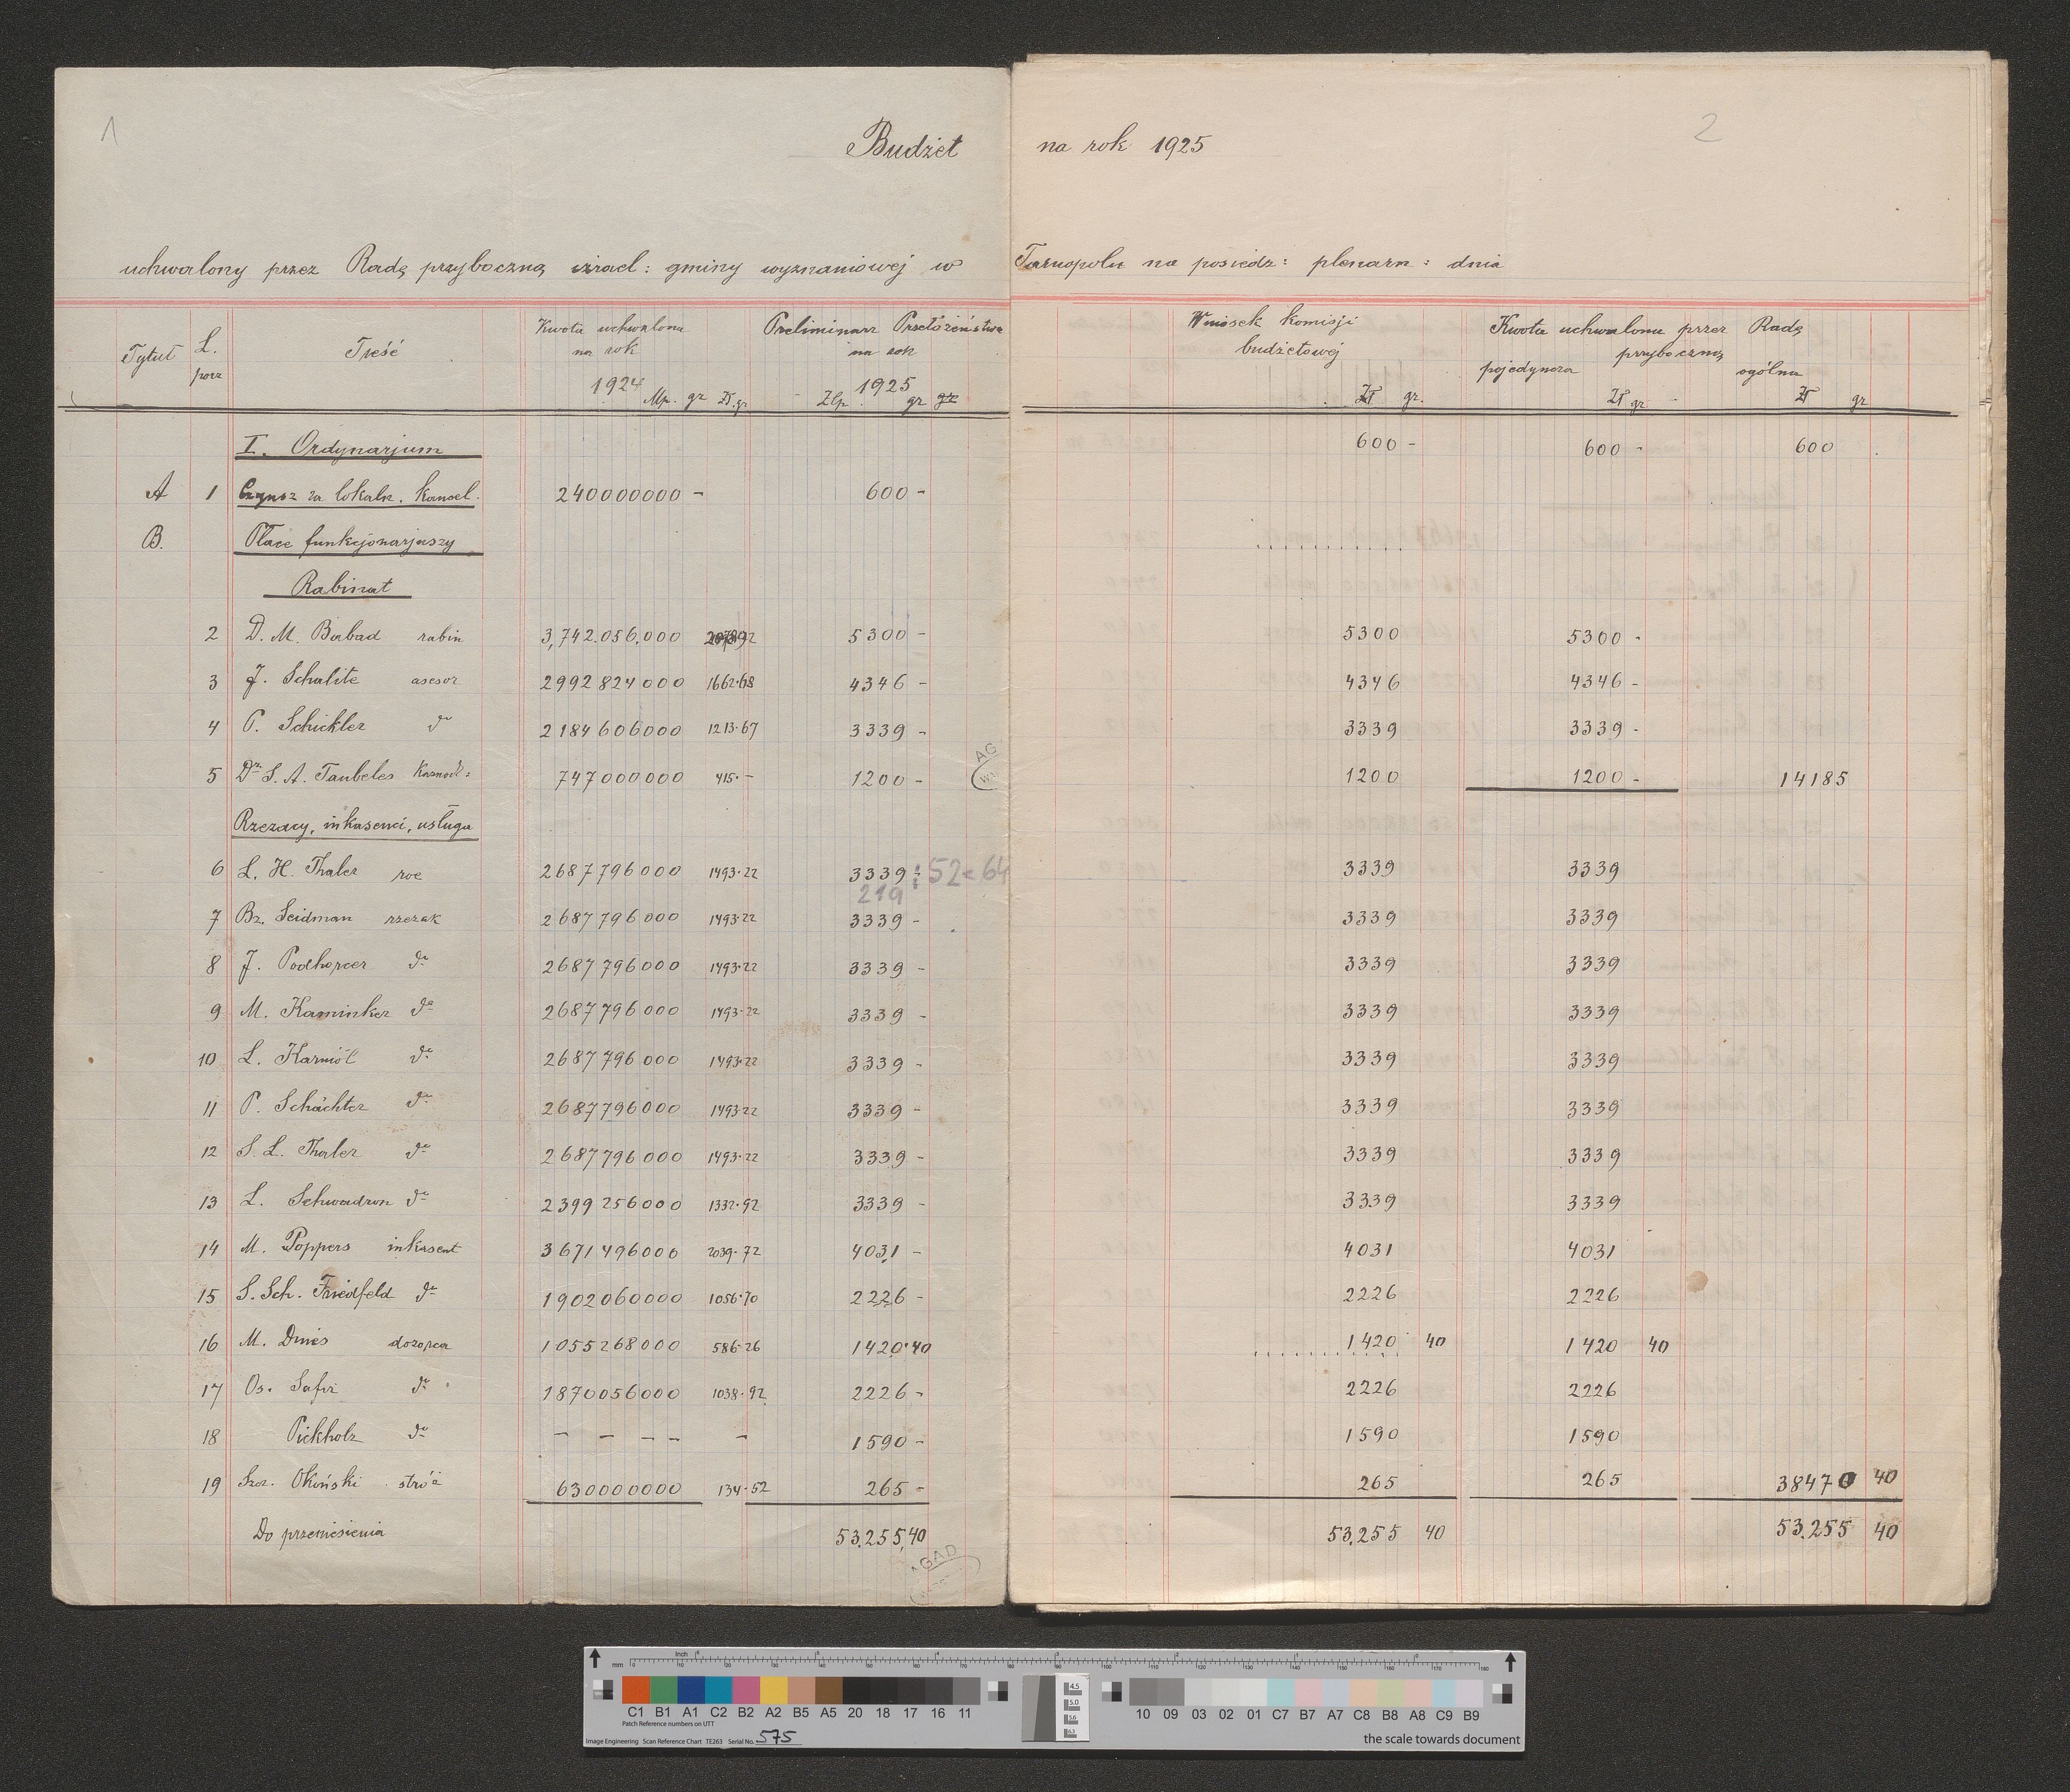 1
2
Budżet na rok 1925
uchwalony przez Radę przyboczną izrael: gminy wyznaniowej w Tarnopolu na posiedz: plenarn: dnia
Tytuł L. porz Treść Kwota uchwalona na rok 1924 Mp. gr Zł. gr Preliminarz Przełożeństwa na rok 1925 Złp gr gr Wniosek komisji budżetowej Zł gr. Kwota uchwalona przez Radę przyboczną pojedyncza Zł gr ogólna Zł gr
I. Ordynarjum 600 - 600 - 600
A 1 Czynsz za lokaln. Kancel. 240000000 - 600 -
B. Płace funkcjonarjuszy
Rabinat
2 D. M. Babad rabin 3,742.056.000 5300 - 5300 5300 -
3 J. Schalite asesor 2992824000 1662.68 4346 - 4346 4346 -
4 P. Schickler dto 2184606000 1213.67 3339 - 3339 3339 -
5 Dr S. A. Taubeles Kaznodz: 747000000 415.- 1200 - 1200 1200 - 14185
Rzezacy, inkasenci, usługa
6 L. H. Thaler 2687796000 1493.22 3339 : 52 = 64 3339 3339
219
7 Bz. Seidman rzezak 2687796000 1493.22 3339 - 3339 3339
8 J. Podhorcer dto 2687796000 1493.22 3339 - 3339 3339
9 M. Kaminker dto 2687796000 1493.22 3339 - 3339 3339
10 L. Karmiöl dto 2687796000 1493.22 3339 - 3339 3339
11 P. Schächter dto 2687796000 1493.22 3339 - 3339 3339
12 S. L. Thaler dto 2687796000 1493.22 3339 - 3339 3339
13 L. Schwadron dto 2399256000 1332.92 3339 - 3339 3339
14 M. Poppers inkasent 3671496000 2039.72 4031 - 4031 4031
15 S. Sch. Friedfeld dto 1902060000 1056.70 2226 - 2226 2226
16 M. Dines dozorca 1055268000 586.26 1420.40 1420 40 1420 40
17 Os. Safir dto 1870056000 1038.92 2226 - 2226 2226
18 Pickholz dto - - - - - 1590 - 1590 1590
19 Okoński stróż 630000000 134.52 265 - 265 265 38470 40
Do przeniesienia 53.255,40 53.255 40 53.255 40
AGAD
Inch
mm 0 10 20 30 40 50 60 70 80 90 100 110 120 130 140 150 160 170 180
C1 B1 A1 C2 B2 A2 B5 A5 20 18 17 16 11
10 09 03 02 01 C7 B7 A7 C8 B8 A8 C9 B9
4.5
5.0
5.6
6.3
Patch Reference numbers on UTT
Image Engineering Scan Reference Chart TE263 Serial No. 575
the scale towards document